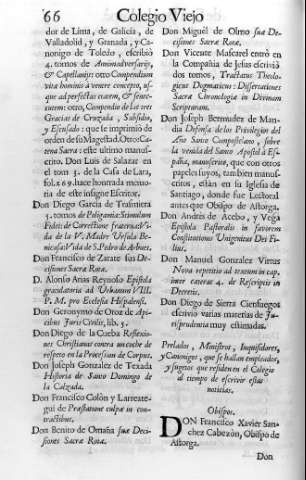 66 Colegio Viejo
dor de Lima, de Galicia, de
Valladolid, y Granada, y Ca-
nonigo de Toledo, escribiò
4. tomos de Anniversarijs,
& Capellanijs: otro Compendium
vitæ hominis à ventre concepto, us-
que ad perfectam ætatem, & senec-
tutem: otro, Compendio de las tres
Gracias de Cruzada, Subsidio,
y Escusado: que se imprimiò de
orden de su Magestad. Otro Ca-
tena Sacra: este ultimo manus-
crito. Don Luis de Salazar en
el tom 3. de la Casa de Lara,
fol. 269. hace honrada memo-
ria de este insigne Escritor.
Don Diego Garcia de Trasmiera
3. tomos de Poligamia: Stimulum
Fidei: de Correctione fraterna: Vi-
da de la V. Madre Ursula Be-
nicasa: Vida de S. Pedro de Arbues.
Don Francisco de Zarate suæ De-
cisiones Sacræ Rotæ.
D. Alonso Arias Reynoso Epistola
gratulatoria ad Urbanum VIII.
P. M. pro Ecclesia Hispalensi.
Don Geronymo de Oroz de Api-
cibus Juris Civilis, lib. 5.
Don Diego de la Cueba Reflexio-
nes Christianas contra un coche de
respeto en la Procession de Corpus.
Don Joseph Gonzalez de Texada
Historia de Santo Domingo de
la Calzada.
Don Francisco Colòn y Larreate-
gui de Præstatione culpæ in con-
tractibus.
Don Benito de Omaña suæ Deci-
siones Sacræ Rotæ.
Don Miguel de Olmo suæ De-
cisiones Sacræ Rotæ.
Don Vicente Mascarel entrò en
la Compañia de Jesus escribiò
dos tomos, Tractatus Theolo-
gicus Dogmaticus: Dissertationes
Sacræ Chronologiæ in Divinam
Scripturam.
Don Joseph Bermudez de Man-
dia Defensa de los Privilegios del
Año Santo Compostelano, sobre
la venida del Santo Apostol à Es-
paña, manuscrito, que con otros
papeles suyos, tambien manus-
critos, estàn en su Iglesia de
Santiago, donde fue Lectoral
antes que Obispo de Astorga.
Don Andrès de Acebo, y Vega
Epistola Pastoralis in favorem
Constitutionis Unigenitus Dei Fi-
lius.
Don Manuel Gonzalez Virtus
Nova repetitio ad textum in cap.
inter cæteras 4. de Rescriptis in
Decretis.
Don Diego de Sierra Cienfuegos
escrivio varias materias de Ju-
risprudencia muy estimadas.
Prelados, Ministros, Inquisidores,
y Canonigos, que se hallan empleados,
y sugetos que residen en el Colegio
al tiempo de escribir estas
noticias.
Obispos.
DON Francisco Xavier San-
chez Cabezòn, Obispo de
Astorga.
Don